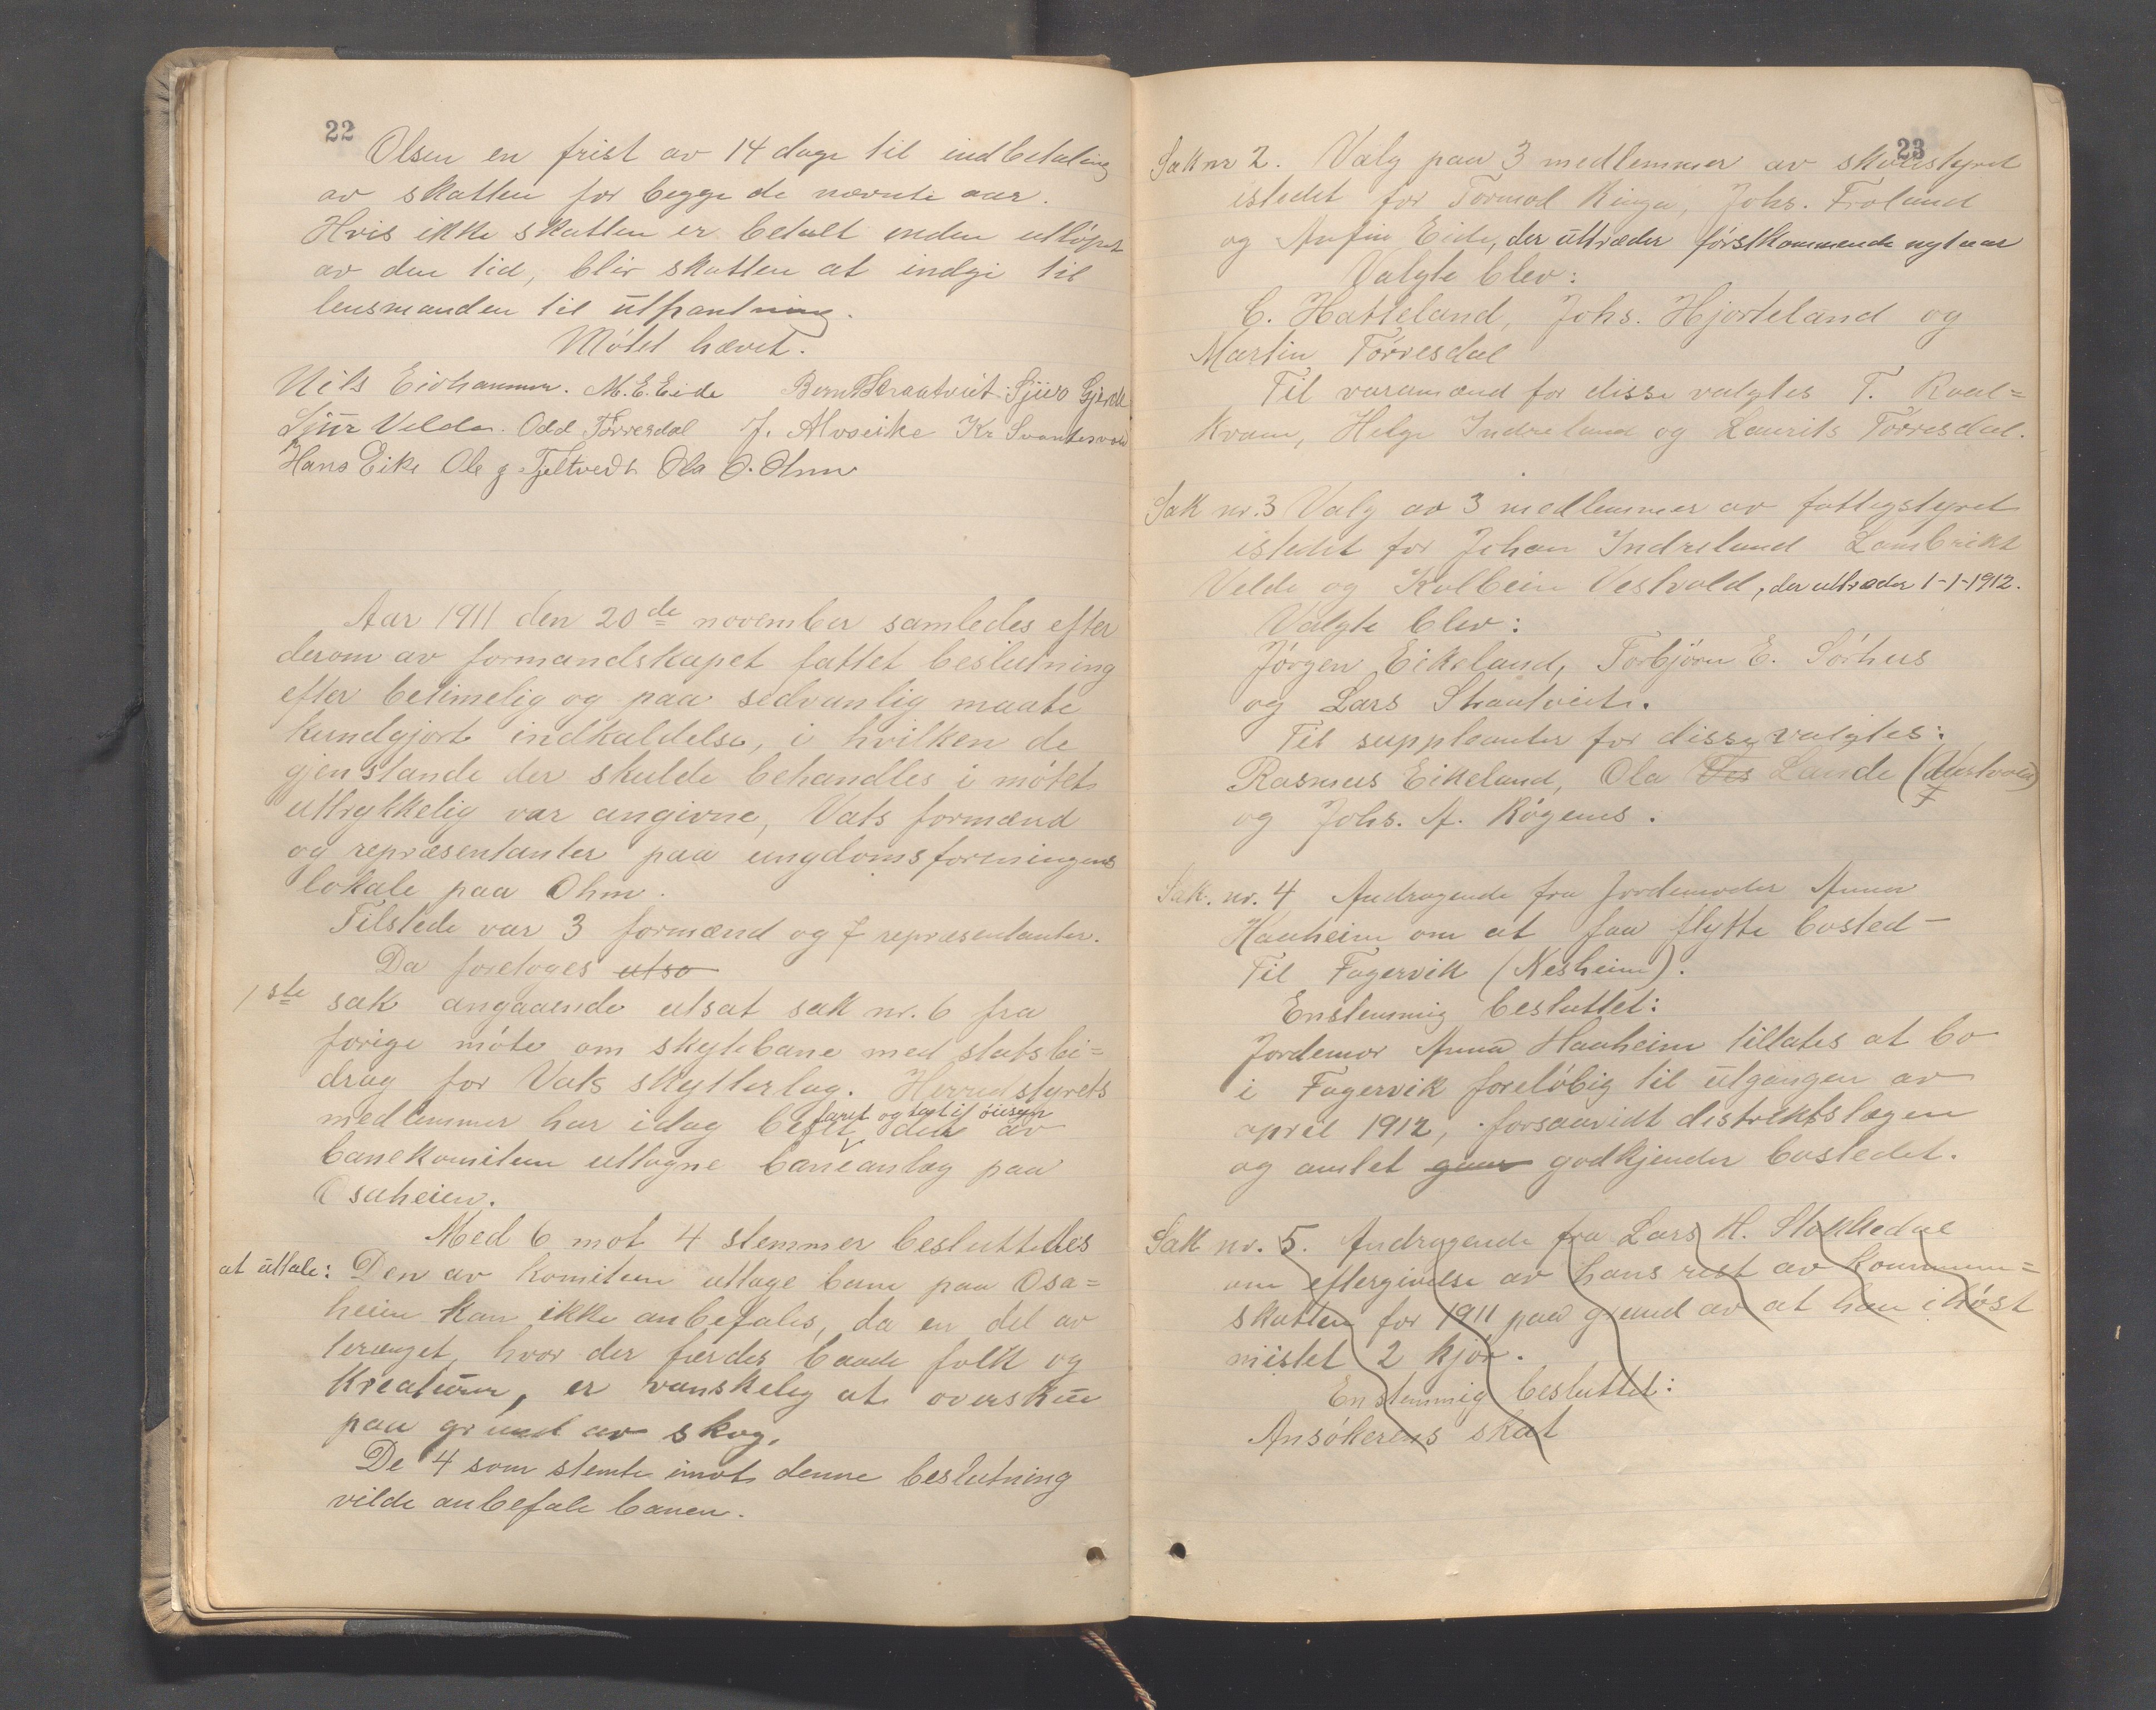 22
Olsen en frist av 14 dage til indbetaling
av skatten for begge de nævnte aar.
Hvis ikke skatten er betalt inden utløpet
av den tid, blir skatten at indgi til
lensmanden til utpantning.
Møtet hævet.
Nils M. E. Eide
Sjur Velde. Odd Tørresdal J. Alvseike Kr
Hans Eike Ole G. Fjeltvedt Ola O. Ohm
Aar 1911 den 20de november samledes efter
derom av formandskapet fattet beslutning
efter betimelig og paa sedvanlig maate
kundgjort indkaldelse, i hvilken de
gjenstande der skulde behandles i møtet
uttrykkelig var angivne, Vats formænd
og repræsentanter paa ungdomsforeningens
lokale paa Ohm.
Tilstede var 3 formænd og 7 repræsentanter.
Da foretoges utsa
1ste sak angaaende utsat sak nr. 6 fra
forige møte om skytebane med statsbi=
drag for Vats skytterlag. Herredstyrets
medlemmer har idag befaret og tat i øiesyn den av
banekomiteen uttagne baneanlæg paa
Osaheien.
Med 6 mot 4 stemmer besluttedes
at uttale: Den av komiteen uttage bane paa Osa=
heien kan ikke anbefales, da en del av
terænget, hvor der færdes baade folk og
kreaturer, er vanskelig at overskue
paa grund av skog.
De 4 som stemte imot denne beslutning
vilde anbefale banen.
23
Sak nr 2. Valg paa 3 medlemmer av skolestyret
istedet for Tormod Ringen, Johs. Frøland
og Anfin Eide, der uttræder førstkommende nytaar
Valgte blev:
C. Hatteland, Johs. Hjorteland og
Martin Tørresdal
Til varamænd for disse valgtes T. Kval=
kvam, Helge Indreland og Laurits Tørresdal.
Sak nr. 3 Valg av 3 medlemmer av fattigstyret
istedet for Johan Indreland Lambrikt
Velde og Kolbein Vestvold, der uttræder 1-1-1912.
Valgte blev:
Jørgen Eikeland, Torbjørn E. Sørhus
og Lars Straatveit.
Til suppleanter for disse valgtes:
Rasmus Eikeland, Ola Lande
og Johs. A. Røgenes.
Sak. nr. 4 Andragende fra Jordemoder Anna
Haaheim om at faa flytte bosted
til Fagervik (Nesheim).
Enstemmig besluttet:
Jordemor Anna Haaheim tillates at bo
i Fagervik foreløbig til utgangen av
april 1912, forsaavidt distriktslægen
og amtet godkjender bostedet.
Sak nr. 5. Andragende fra Lars H. Stokkedal
om eftergivelse av hans rest av kommune=
skatten for 1911 paa grund av at han i høst
mistet 2 kjør.
Enstemmig besluttet:
Ansøkerens skat